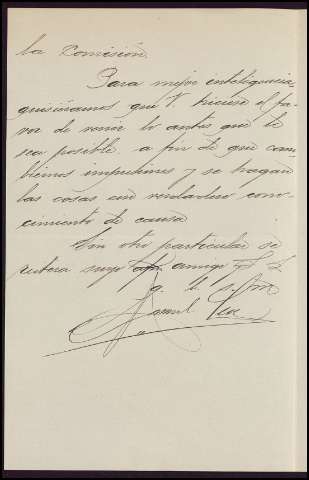 la Comisión.
Para mejor inteligencia
quisieramos que V. hiciera el fa-
vor de venir lo antes que le
sea posible a fin de que cam-
biemos impresiones y se hagan
las cosas con verdadero cono-
cimiento de causa
Sin otro particular se
reitera suyo afmo amigo y S. S.
q. b. s. m
Manuel